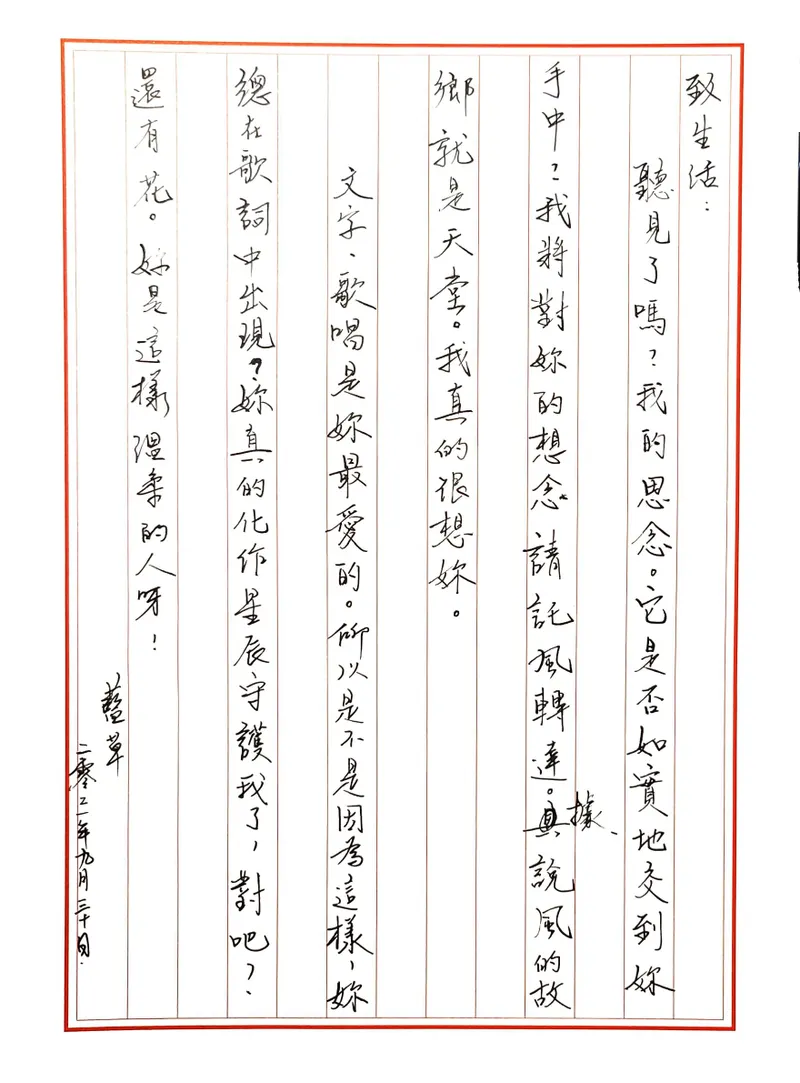 致生活：
聽見了嗎？我的思念。它是否如實地交到妳
手中？我將對妳的想念請託風轉達。據說風的故
鄉就是天堂。我真的很想妳。
文字、歌唱是妳最愛的。所以是不是因為這樣，妳
總在歌詞中出現？妳真的化作星辰守護我了，對吧？
還有花。妳是這樣溫柔的人呀！
藍草
二零二一年九月三十日.